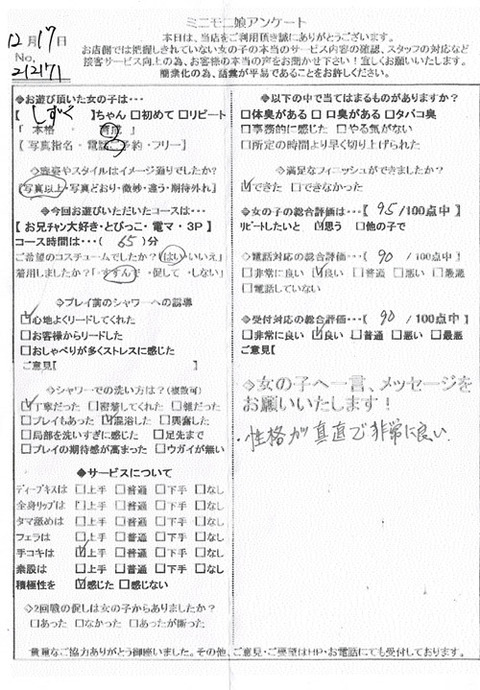 ミニモニ娘アンケート
12月17日
No. 212171
本日は、当店をご利用頂き誠にありがとうございます。
お店側では把握しきれていない女の子の本当のサービス内容の確認、スタッフの対応など
接客サービス向上の為、お客様の本当の声をお聞かせ下さい！宜しくお願いいたします。
簡素化の為、語彙が平易であることをお許しください。
◇お遊び頂いた女の子は…
【 しずく 】ちゃん □初めて □リピート
「 本格 ・ 育成 」
【 写真指名 ・ 電話予約 ・フリー】
◇容姿やスタイルはイメージ通りでしたか？
【写真以上・写真どおり・微妙・違う・期待外れ】
◇今回お遊びいただいたコースは…
【 お兄チャン大好き・とびっこ・電マ・3P 】
コース時間は…( 65 )分
ご希望のコスチュームでしたか？（はい・いいえ）
着用しましたか？（すすんで・促して・しない）
◇プレイ前のシャワーへの誘導
☑心地よくリードしてくれた
□お客様からリードした
□おしゃべりが多くストレスに感じた
ご意見【 】
◇シャワーでの洗い方は？(複数可)
☑丁寧だった □密着してくれた □雑だった
□プレイもあった ☑混浴した □興奮した
□局部を洗いすぎに感じた □足先まで
□プレイの期待感が高まった □ウガイが無い
◆サービスについて
ディープキスは □上手 □普通 □下手 □なし
全身リップは □上手 □普通 □下手 □なし
タマ舐めは □上手 □普通 □下手 □なし
フェラは □上手 □普通 □下手 □なし
手コキは ☑上手 □普通 □下手 □なし
素股は □上手 □普通 □下手 □なし
積極性を ☑感じた □感じない
◇2回戦の促しは女の子からありましたか？
□あった □なかった □あったが断った
◇以下の中で当てはまるものがありますか？
□体臭がある □口臭がある □タバコ臭
□事務的に感じた □やる気がない
□所定の時間より早く切り上げられた
◇満足なフィニッシュができましたか？
☑できた □できなかった
◇女の子の総合評価は…【 95/100点中 】
リピートしたいと ☑思う □他の子で
◇電話対応の総合評価…【 90 /100点中】
□非常に良い ☑良い □普通 □悪い □最悪
□電話していない
◇受付対応の総合評価…【 90 /100点中】
□非常に良い ☑良い □普通 □悪い □最悪
ご意見【
◇女の子へ一言、メッセージを
お願いいたします！
・性格が真直で非常に良い.
貴重なご協力ありがとう御座いました。その他、ご意見・ご要望はHP・お電話にても受付しております。